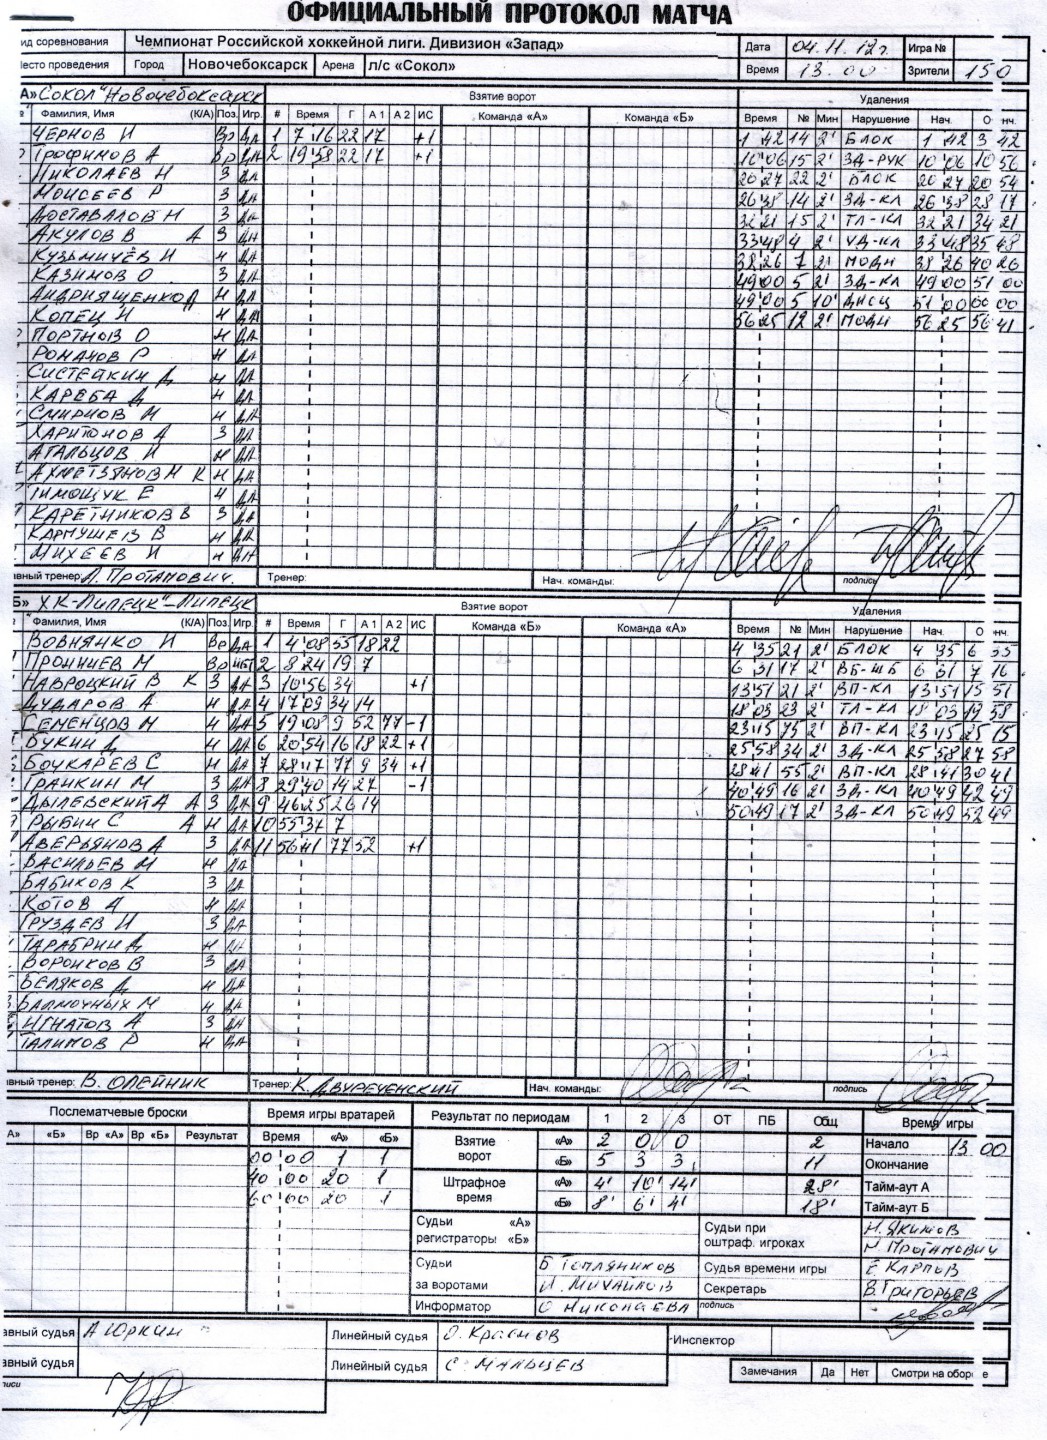 ОФИЦИАЛЬНЫЙ ПРОТОКОЛ МАТЧА
ид соревнования Чемпионат Российской хоккейной лиги. Дивизион «Запад» Дата 04.11.12г. Игра №
есто проведения Город Новочебоксарск Арена л/с «Сокол» Время 13.00 Зрители 150
А» СОКОЛ "Новочебоксарск Взятие ворот Удаления
Фамилия, Имя (К/А) Поз. Игр. # Время Г А1 А2 ИС Команда «А» Команда «Б» Время № Мин Нарушение Нач. О нч.
ЧЕРНОВ И Вр ДА 1 7 16 22 17 +1 1 42 14 2' БЛОК 1 42 3 42
ТРОФИМОВ А Вр ДА 2 19 38 22 17 +1 10 06 15 2' ЗД-РУК 10 06 10 56
НИКОЛАЕВ Н З ДА 20 27 22 2' БЛОК 20 27 20 54
МОИСЕЕВ Р З ДА 26 38 14 2' ЗД-КЛ 26 38 28 17
ДОСТАВАЛОВ Н З ДА 32 21 15 2' ТЛ-КЛ 32 21 34 21
АКУЛОВ В А З ДА 33 48 4 2' УД-КЛ 33 48 35 48
КУЗЬМИЧЁВ И Н ДА 38 26 7 2' 38 26 40 26
КАЗИМОВ О З ДА 49 00 5 2' ЗД-КЛ 49 00 51 00
АНДРИЯЩЕНКО Н ДА 49 00 5 10' ДИСЦ 51 00 00 00
КОПЕЦ И Н ДА 56 25 12 2' 56 25 56 41
ПОРТНОВ О Н ДА
РОМАНОВ Р Н ДА
СИСТЕЙКИН Д Н ДА
КАРЕБА Д Н ДА
СМИРНОВ М Н ДА
ХАРИТОНОВ А З ДА
АТАЛЬЦОВ И Н ДА
АХМЕТЗЯНОВ Н К Н ДА
ТИМОЩУК Е Н ДА
КАРЕТНИКОВ В З ДА
КАРМУШЕВ В Н ДА
МИХЕЕВ И Н ДА
вный тренер: Тренер: Нач. команды: подпись
Б» ХК-ЛИПЕЦК"-ЛИПЕЦК Взятие ворот Удаления
Фамилия, Имя (К/А) Поз. Игр. # Время Г А1 А2 ИС Команда «Б» Команда «А» Время № Мин Нарушение Нач. О нч.
ВОВНЯНКО И Вр ДА 1 4 08 55 18 22 4 35 21 2' БЛОК 4 35 6 35
ПРОНИЧЕВ М Вр НЕТ 2 8 24 19 7 6 31 17 2' 6 31 7 16
НАВРОЦКИЙ В К З ДА 3 10 56 34 +1 13 51 21 2' ВП-КЛ 13 51 15 51
ДУДАРОВ А Н ДА 4 17 09 34 14 18 03 23 2' ТЛ-КЛ 18 03 19 58
СЕМЕНЦОВ М Н ДА 5 19 08 9 52 77 -1 23 15 75 2' ВП-КЛ 23 15 25 15
БУКИН Д Н ДА 6 20 54 16 18 22 +1 25 58 34 2' ЗД-КЛ 25 58 27 58
БОЧКАРЁВ С Н ДА 7 28 17 77 9 34 +1 28 41 55 2' ВП-КЛ 28 41 30 41
ГРАНКИН М З ДА 8 29 40 14 27 -1 40 49 16 2' ЗД-КЛ 40 49 42 49
ДЫЛЕВСКИЙ А А З ДА 9 46 25 26 14 50 49 17 2' ЗД-КЛ 50 49 52 49
РЫБИН С А Н ДА 10 55 37 7
АВЕРЬЯНОВ А З ДА 11 56 41 77 52 +1
ВАСИЛЬЕВ М Н ДА
БАБИКОВ К З ДА
КОТОВ А Н ДА
ГРУЗДЕВ И З ДА
ТАРАБРИН Д Н ДА
ВОРОНКОВ В З ДА
БЕЛЯКОВ Д Н ДА
М Н ДА
ИГНАТОВ А З ДА
ГАЛИМОВ Р Н ДА
вный тренер: В. ОЛЕЙНИК Тренер: К. ДВУРЕЧЕНСКИЙ Нач. команды: подпись
Послематчевые броски Время игры вратарей Результат по периодам 1 2 3 ОТ ПБ Общ Время игры
А» «Б» Вр «А» Вр «Б» Результат Время «А» «Б» Взятие ворот «А» 2 0 0 2 Начало 13 00
00 00 1 1 «Б» 5 3 3 11 Окончание
40 00 20 1 Штрафное время «А» 4' 10' 14' 28' Тайм-аут А
60 00 20 1 «Б» 8' 6' 4' 18' Тайм-аут Б
Судьи «А» регистраторы «Б» Судьи при оштраф. игроках Н. ЯКИМОВ
Судьи за воротами Б ТОПЛЯНИКОВ Судья времени игры Е. КАРПОВ
И. МИХАЙЛОВ Секретарь В. ГРИГОРЬЕВ
Информатор О НИКОЛАЕВА подпись
авный судья А ЮРКИН Линейный судья О. Краснов Инспектор
авный судья Линейный судья С. МАЛЬЦЕВ Замечания Да Нет Смотри на обор е
писи